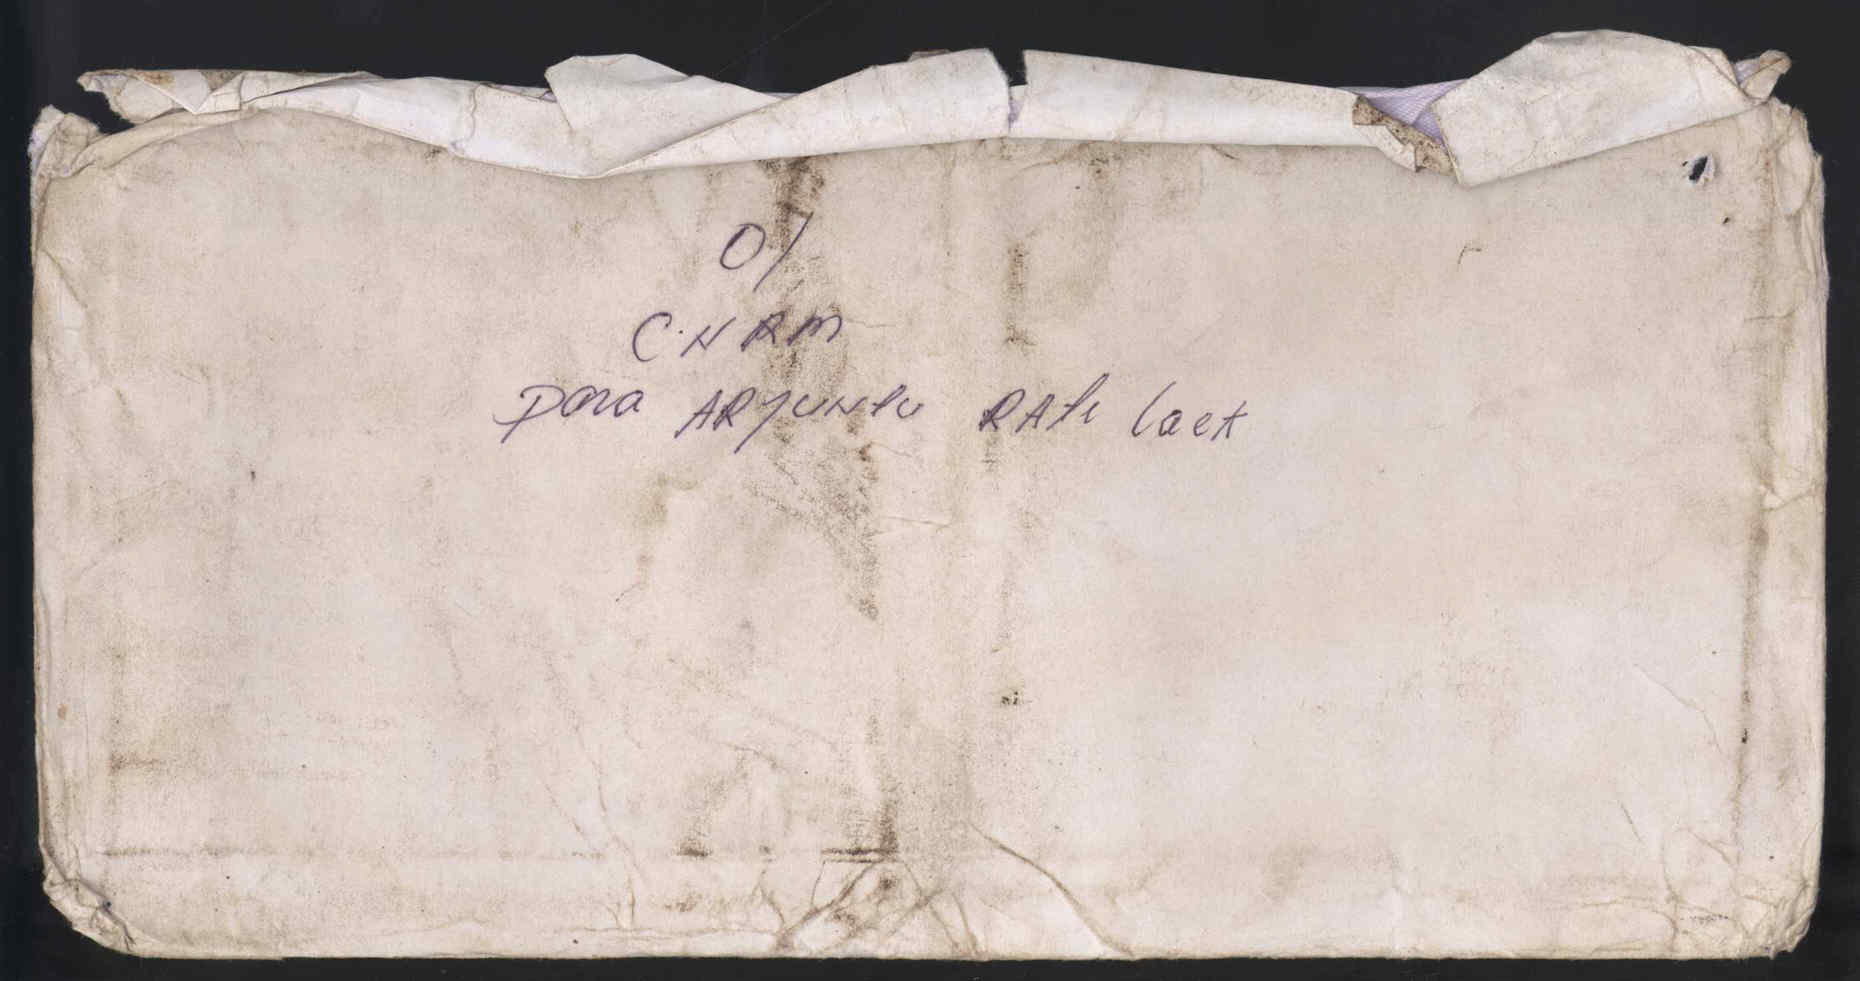 O/
CNRM
Para ARJUNTO RATi Laet